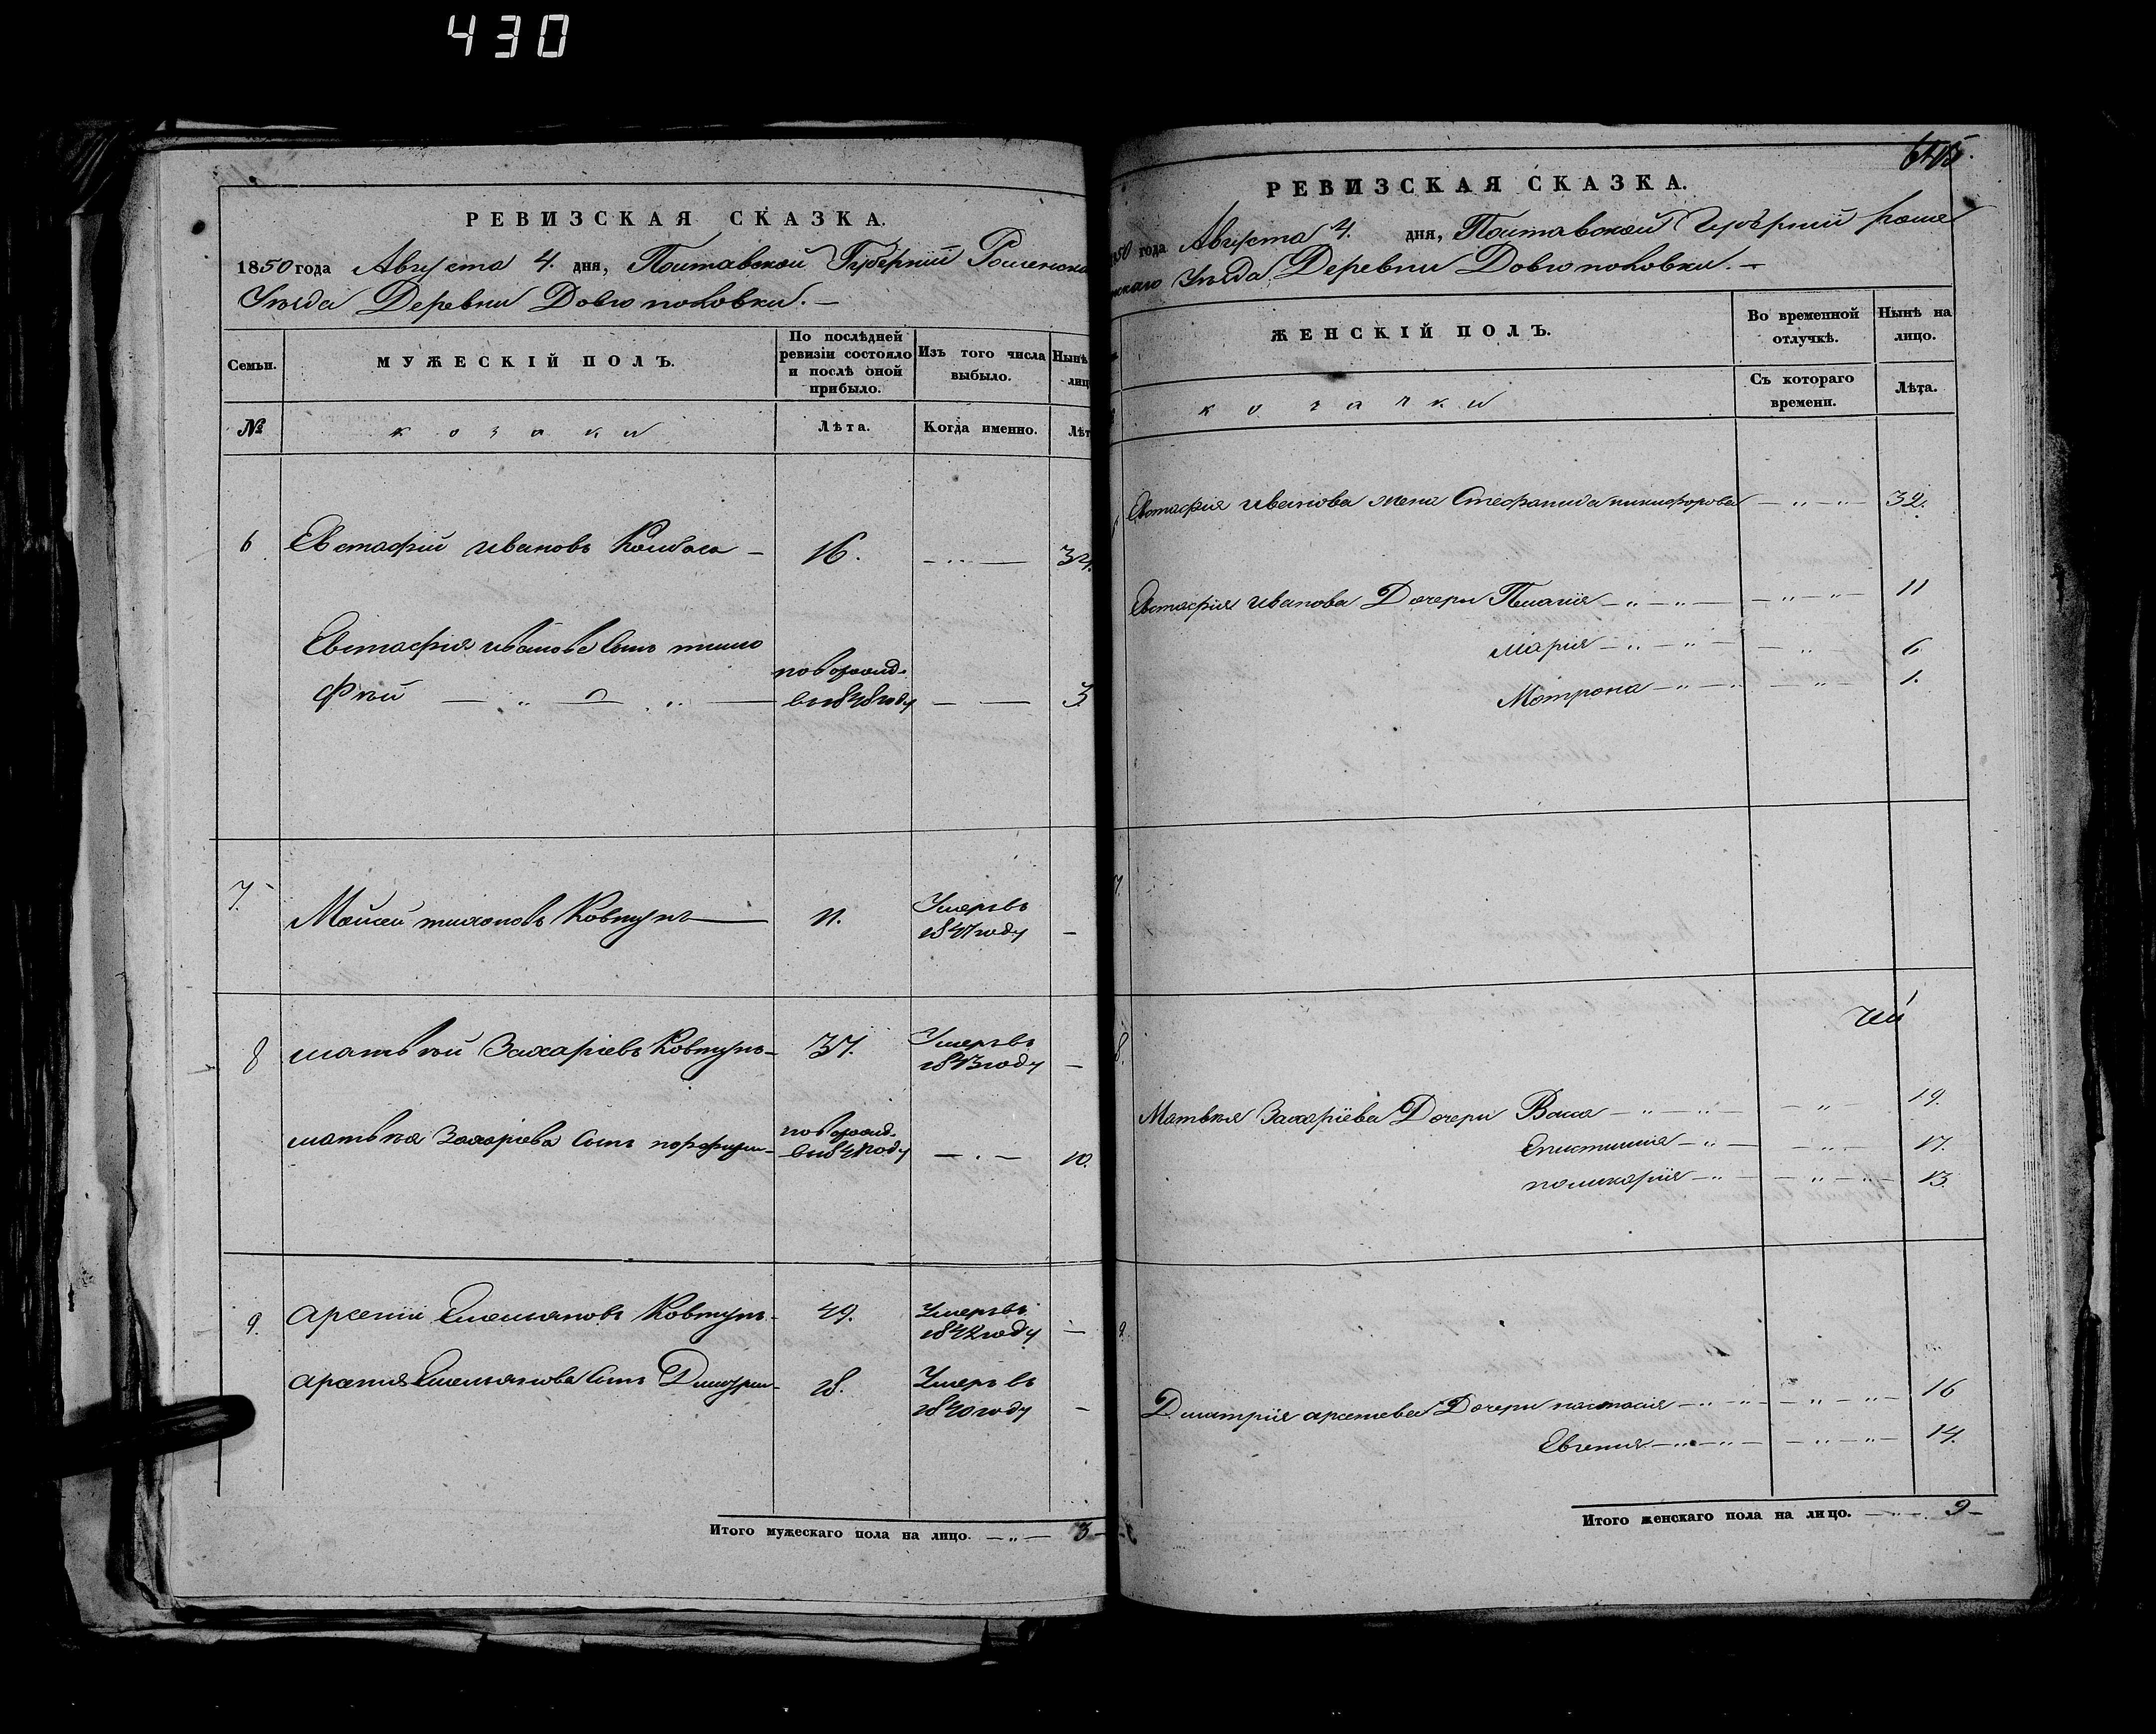 430
РЕВИЗСКАЯ СКАЗКА.
1850 года Августа 4. дня, Полтавской Губерніи Роменска
Уѣзда Деревни Довгополовки.
Семьи.
МУЖЕСКІЙ ПОЛЪ.
По послѣдней ревизіи состояло и послѣ оной прибыло.
Изъ того числа выбыло.
Нынѣ
лиц
№
козаки
Лѣта.
Когда именно.
Лѣт
6 Евстафій Ивановъ 16. 34.
Евстафія Иванова сынъ Тимо
новорожд.
фѣй въ 1848 году 3
7. Мойсей Тихоновъ Ковтунъ 11. Умеръ въ
1847 году
8 Матвѣй Захаріевъ Ковтунъ 37. Умеръ въ
1843 году
Матвѣя Захаріева сынъ Порфирій новорожд.
10.
9. Арсеній Емельяновъ Ковтунъ 49. Умеръ въ
1842 году
Арсенія Емельянова сынъ Дмитрій 28. Умеръ въ
1840 году
Итого мужескаго пола на лицо. 3
РЕВИЗСКАЯ СКАЗКА.
850 года Августа 4. дня, Полтавской Губерніи Роме
нскаго Уѣзда Деревни Довгополовки.
ЖЕНСКІЙ ПОЛЪ.
Во временной отлучкѣ.
Нынѣ на лицо.
козачки
Съ котораго времени.
Лѣта.
Евстафія Иванова жена Стефанида Никифорова 32.
Евстафія Иванова Дочери Пелагія 11
Марія 6
Матрона 1.
7.
8.
Матвѣя Захаріева Дочери Васса 19.
Епистимія 17.
Поликарпія 13.
9.
Дмитрія Арсеніева Дочери Настасія 16
Евгенія 14.
Итого женскаго пола на лицо. 9